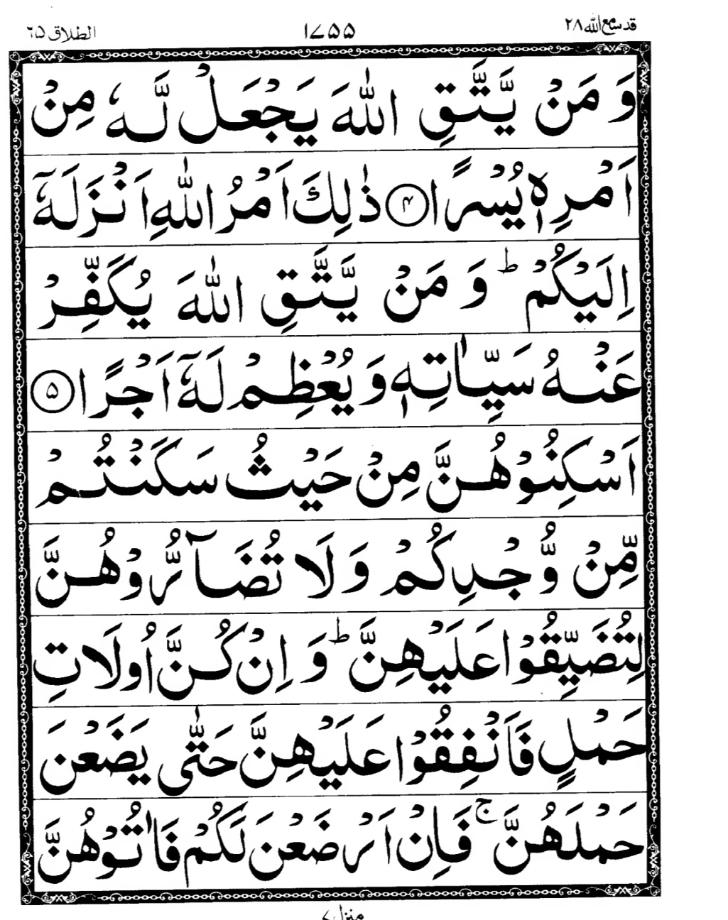 قد سمع الله ۲۸ ۱۷۵۵ الطلاق ۶۵
وَ مَنْ يَّتَّقِ اللّٰهَ يَجْعَلْ لَّهٗ مِنْ
اَمْرِهٖ يُسْرًا ۝۴ ذٰلِكَ اَمْرُ اللّٰهِ اَنْزَلَهٗۤ
اِلَيْكُمْ ؕ وَ مَنْ يَّتَّقِ اللّٰهَ يُكَفِّرْ
عَنْهُ سَيِّاٰتِهٖ وَ يُعْظِمْ لَهٗۤ اَجْرًا ۝۵
اَسْكِنُوْهُنَّ مِنْ حَيْثُ سَكَنْتُمْ
مِّنْ وُّجْدِكُمْ وَ لَا تُضَآرُّوْهُنَّ
لِتُضَيِّقُوْا عَلَيْهِنَّ ؕ وَ اِنْ كُنَّ اُولَاتِ
حَمْلٍ فَاَنْفِقُوْا عَلَيْهِنَّ حَتّٰى يَضَعْنَ
حَمْلَهُنَّ ۚ فَاِنْ اَرْضَعْنَ لَكُمْ فَاٰتُوْهُنَّ
منزل ۷